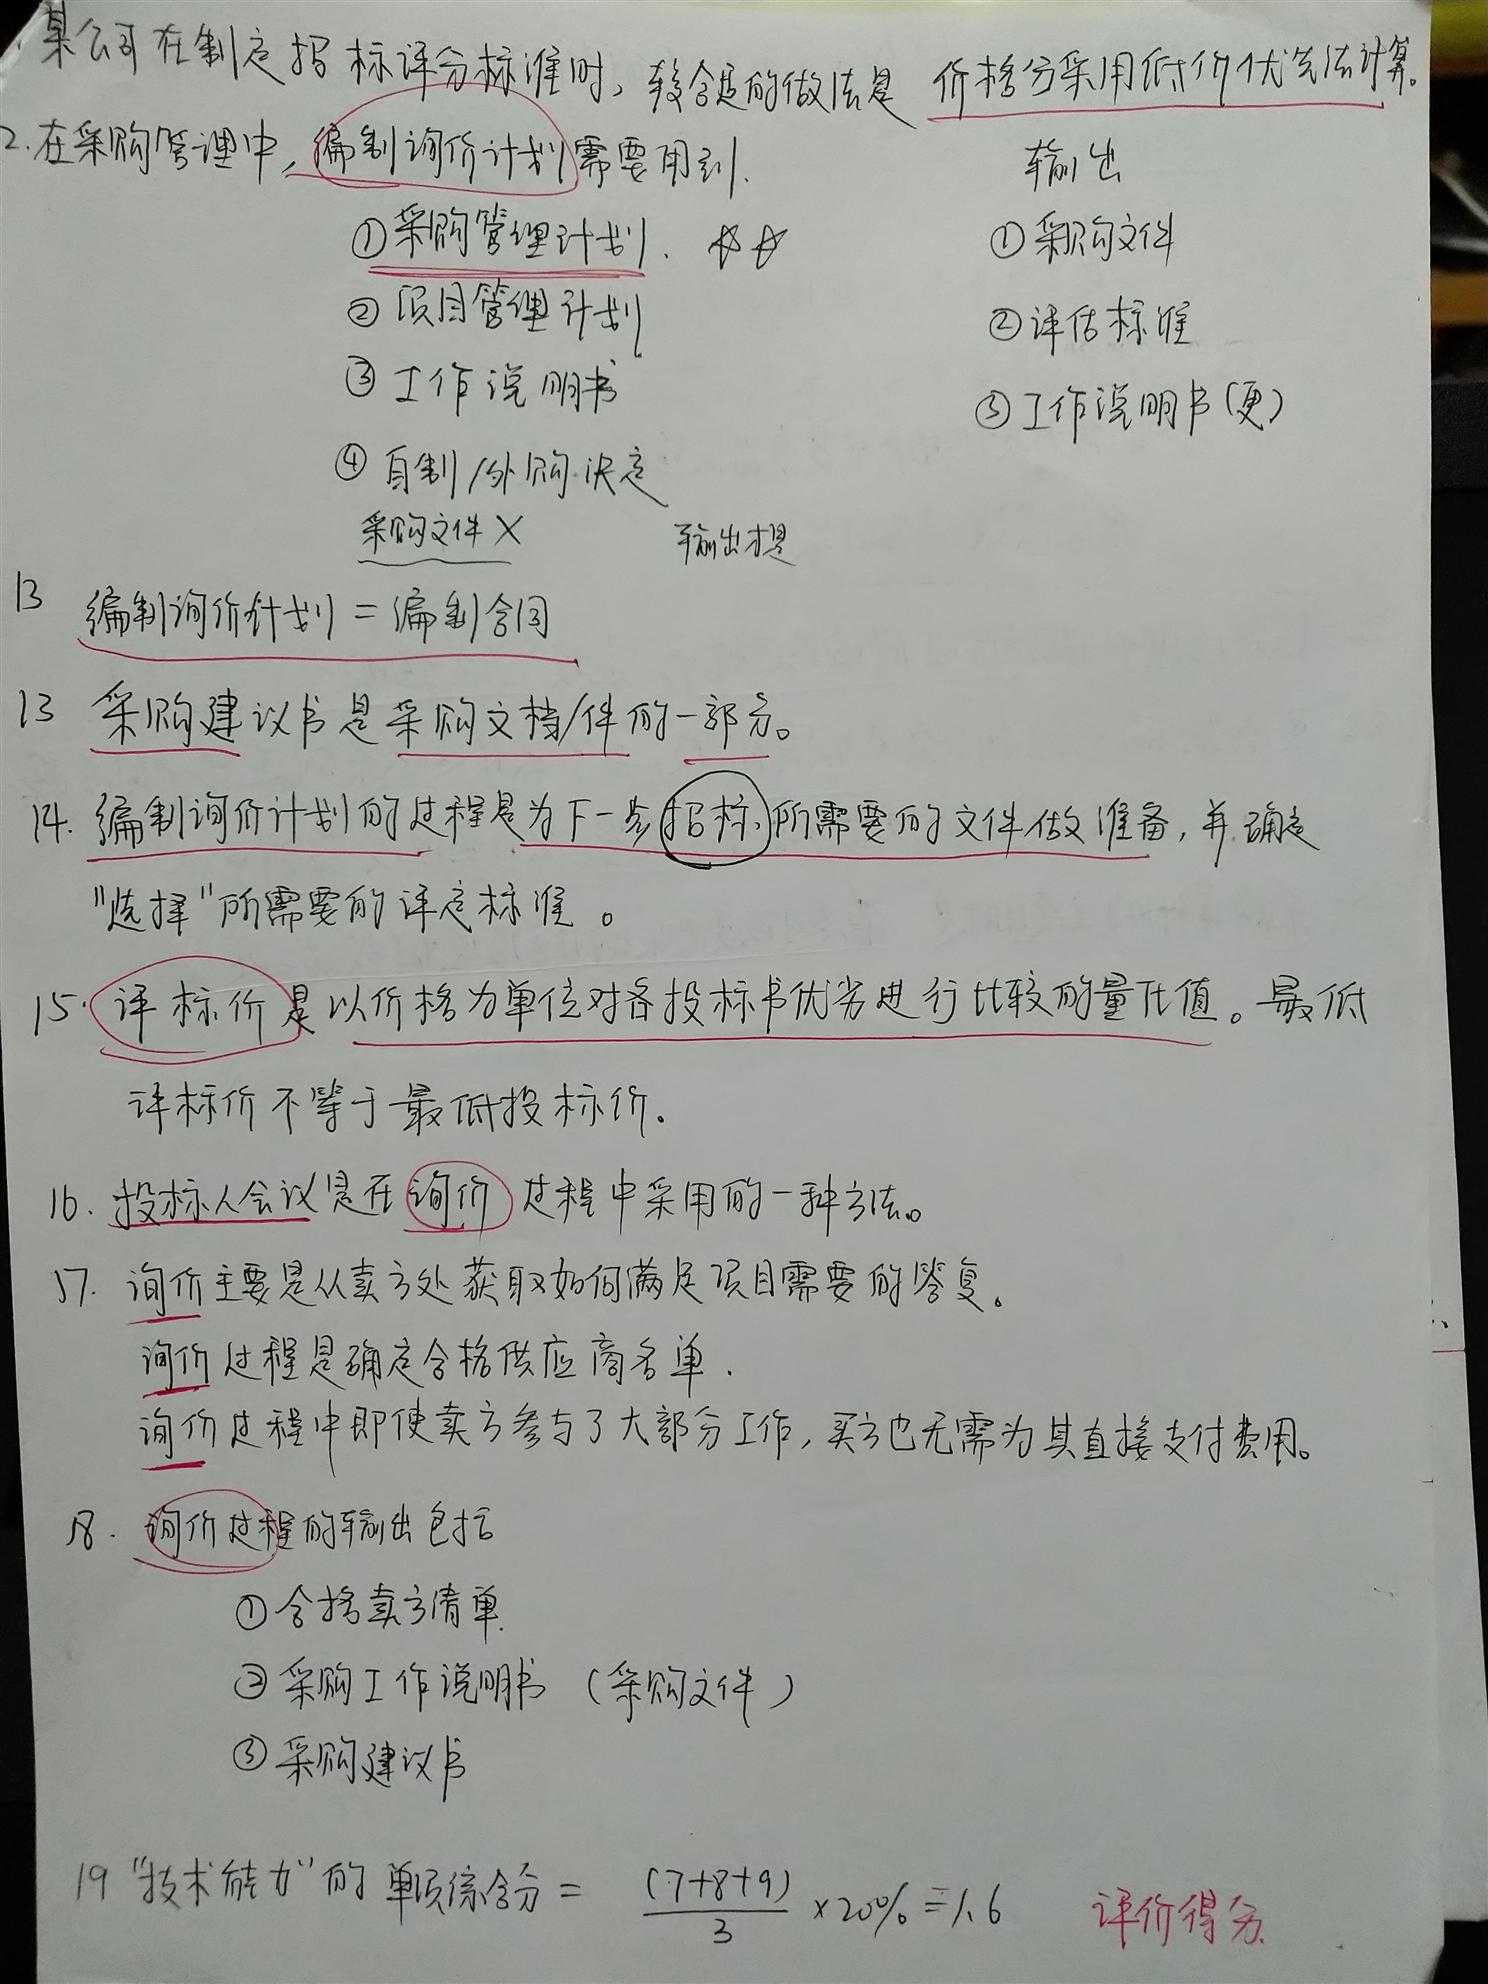 某公司在制定招标评分标准时，较合适的做法是 价格分采用低价优先法计算。
2.在采购管理中，编制询价计划需要用到.
输出
①采购管理计划. ☆☆
①采购文件
②项目管理计划
②评估标准
③工作说明书
③工作说明书(更)
④自制/外购决定
采购文件X 输出才是
13 编制询价计划=编制合同
13 采购建议书是采购文档/件的一部分。
14. 编制询价计划的过程是为下一步招标所需要的文件做准备, 并确定
"选择"所需要的评定标准。
15. 评标价是以价格为单位对各投标书优劣进行比较的量化值。最低
评标价不等于最低投标价.
16. 投标人会议是在询价过程中采用的一种方法。
17. 询价主要是从卖方处获取如何满足项目需要的答复。
询价过程是确定合格供应商名单.
询价过程中即使卖方参与了大部分工作, 买方也无需为其直接支付费用。
18. 询价过程的输出包括
①合格卖方清单
②采购工作说明书 (采购文件)
③采购建议书
19 "技术能力"的单项综合分 = (7+8+9)/3 ×20% = 1.6 评价得分